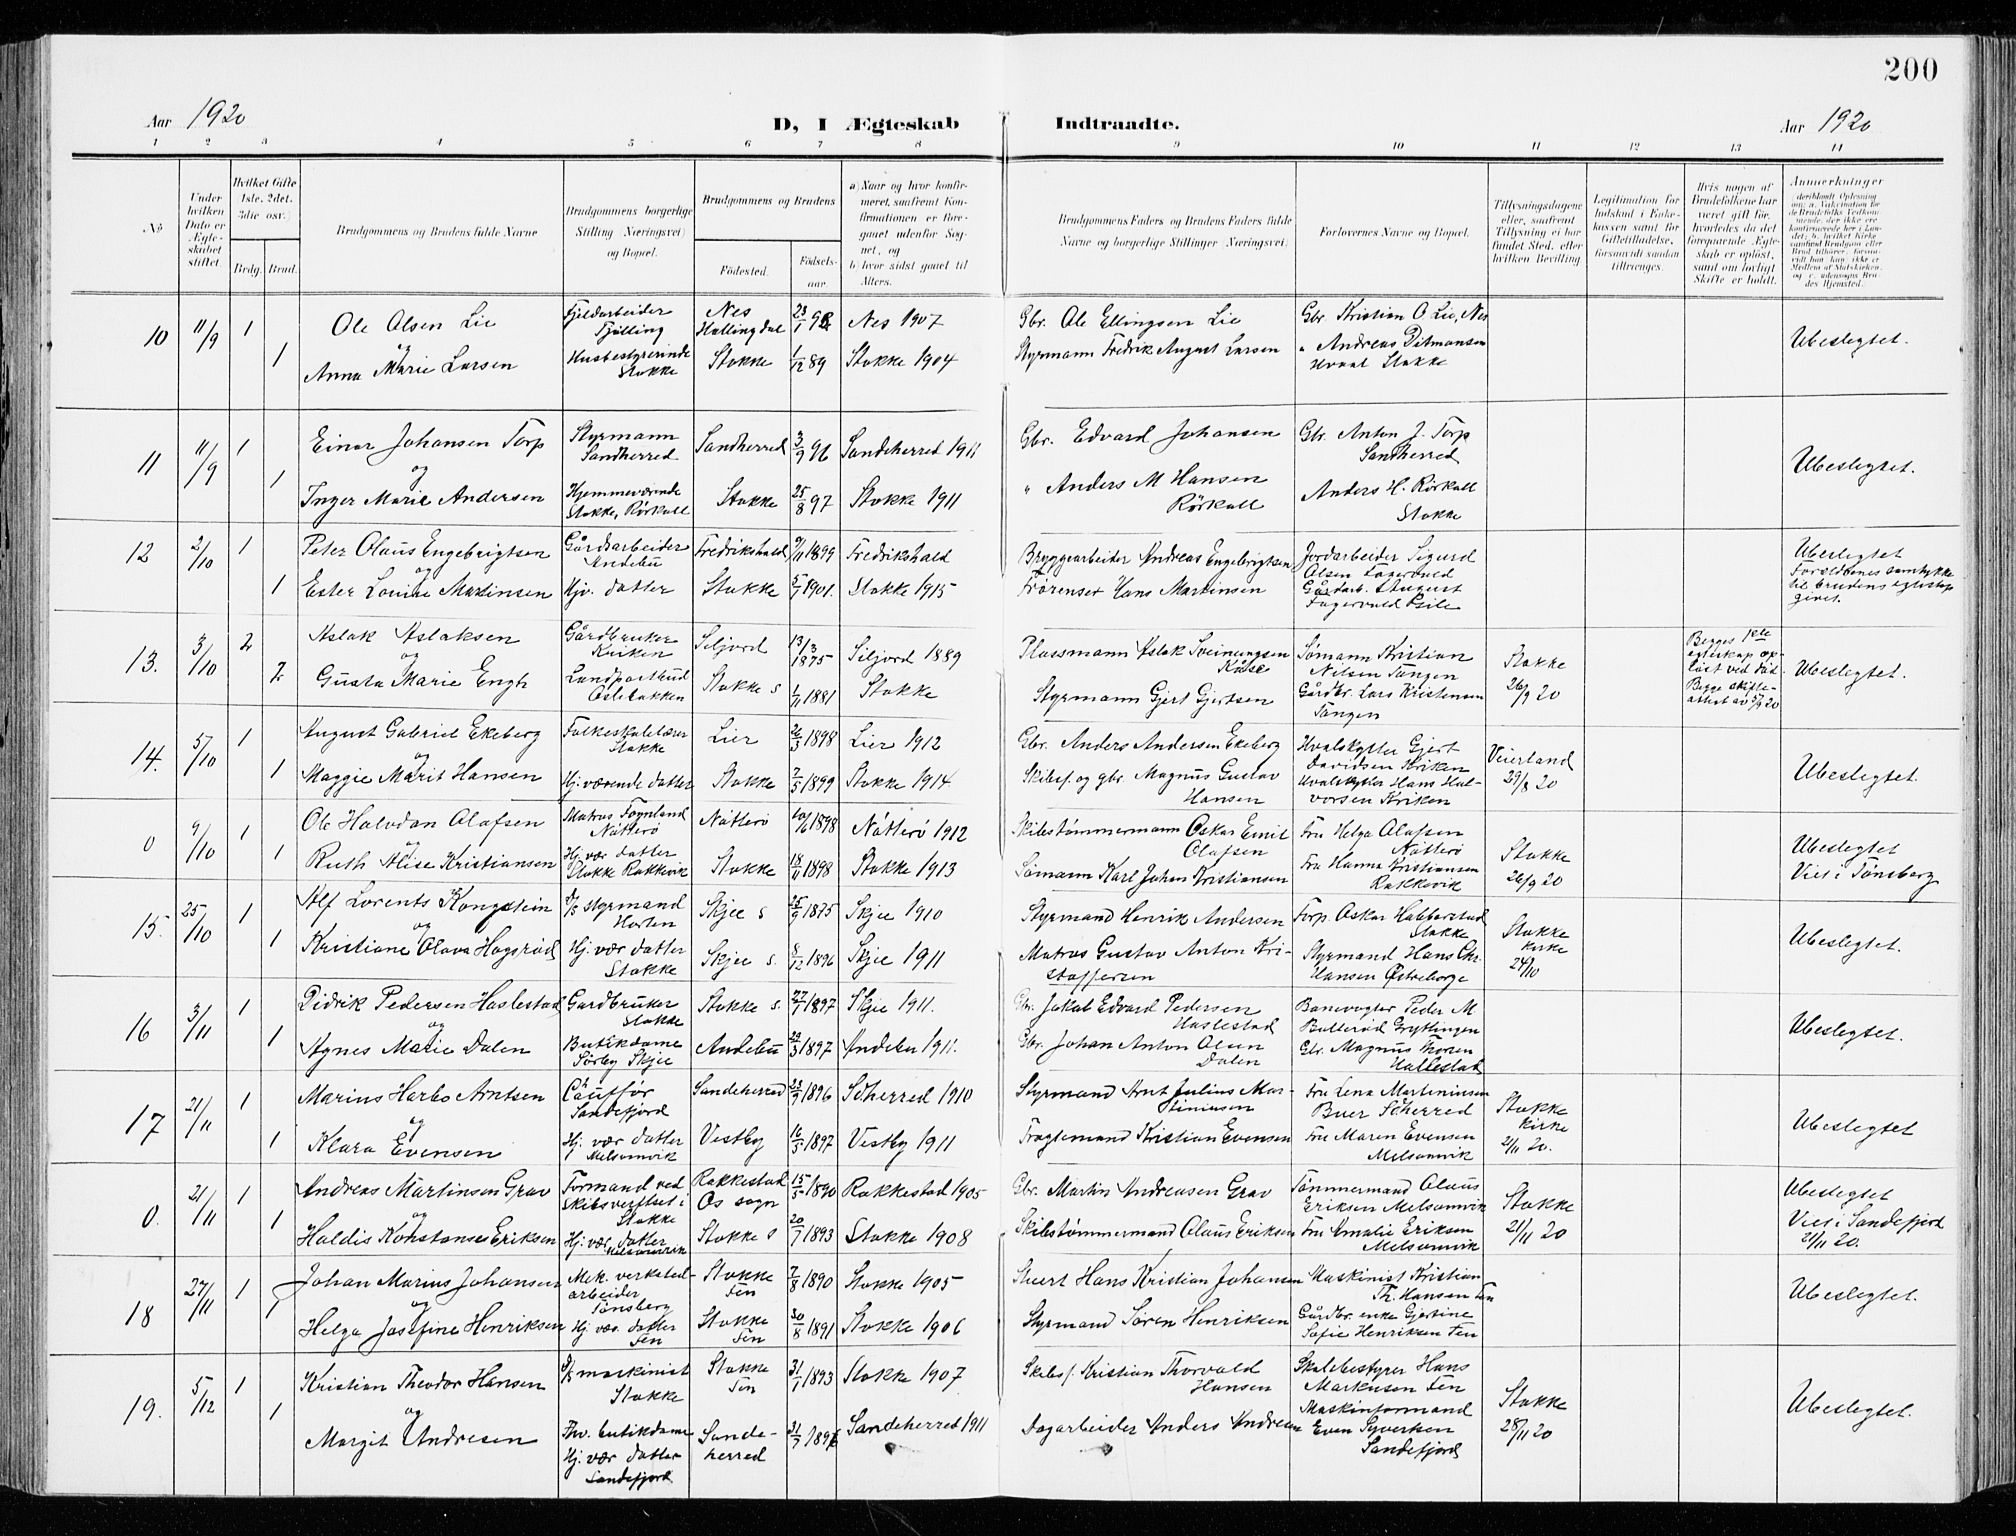 200
Aar 1920 D, I Ægteskab Indtraadte. Aar 1920
1 2 3 4 5 6 7 8 9 10 11 12 13 14
No
Under hvilken Dato er Ægteskabet stiftet.
Hvilket Gifte 1ste, 2det, 3die osv.)
Brdg. Brud.
Brudgommens og Brudens fulde Navne
Brudgommens borgerlige Stilling (Næringsvei) og Bopæl.
Brudgommens og Brudens
Fødested. Fødselsaar.
a) Naar og hvor konfirmeret, saafremt Konfirmationen er foregaaet udenfor Sognet, og
b) hvor sidst gaaet til Alters.
Brudgommens Faders og Brudens Faders fulde Navne og borgerlige Stillinger (Næringsvei.
Forlovernes Navne og Bopæl.
Tillysningsdagene eller, saafremt Tillysning ei har fundet Sted, efter hvilken Bevilling.
Legitimation for Indskud i Enkekassen samt for Giftetilladelse, forsaavidt saadan tiltrænges.
Hvis nogen af Brudefolkene har været gift før, hvorledes da det foregaaende Ægteskab er opløst, samt om lovligt Skifte er holdt.
Anmerkninger
10 11/9 1 Ole Olsen Lie Fjeldarbeider Fjølling Nes Hallingdal 23/1 92 Nes 1907 Gbr. Ole Ellingsen Lie Gbr. Kristian O Lie, Nes Ubeslegtet.
og
1 Anna Marie Larsen Husbestyrerinde Stokke Stokke 1/12 89 Stokke 1904 Styrmann Fredrik August Larsen " Andreas Ditmansen Hvaal Stokke
11 11/9 1 Einar Johansen Torp Styrmann Sandherred Sandherred 3/9 96 Sandeherred 1911 Gbr. Edvard Johansen Gbr. Anton J. Torp Sandherred Ubeslegtet.
og
1 Inger Marie Andersen Hjemmeværende Stokke, Rörkoll Stokke 25/8 97 Stokke 1911 " Anders M Hansen Rörkoll Anders H. Rörkoll Stokke
12 2/10 1 Peter Olaus Engebrigtsen Gårdsarbeider Andebu Fredrikshald 9/11 1899 Fredrikshald Bryggearbeider Andreas Engebrigtsen Jordarbeider Sigurd Olsen Fagervold Ubeslegtet Foreldrenes samtykke til brudens egteskap givet.
og
1 Ester Louise Martinsen Hjv. datter Stokke 5/7 1901. Stokke 1915 Hans Martinsen Gårdarb. August Fagervold
13. 3/10 2 Aslak Aslaksen Gårdbruker Kriken Siljord 13/3 1875 Siljord 1889 Plassmann Aslak Sveinungsen Kåse Sømann Kristian Nilsen Tangen Stokke 26/9 20 Begges 1ste egteskap opløst ved død. Begge skifteattest av 5/9 20 Ubeslegtet.
og
2 Gusta Marie Engh Landpostbud Oslebakken Stokke s 1/11 1881 Stokke Styrmann Gjert Gjertsen Gårdbr. Lars Kristensen Tangen
14. 5/10 1 August Gabriel Ekeberg Folkeskolelærer Stokke Lier 26/3 1898 Lier 1912 Gbr. Anders Andersen Ekeberg Hvalskytter Gjert Davidsen Kriken Veierland 29/8 20 Ubeslegtet.
og
1 Maggie Marit Hansen Hj. værende datter Stokke 2/5 1899 Stokke 1914 Skibsf. og gbr. Magnus Gustav Hansen Hvalskytter Hans Halvorsen Kriken
0 9/10 1 Ole Halvdan Olafsen Matros Føynland Nøtterø Nøtterø 10/6 1898 Nøtterø 1912 Skibstømmermann Oskar Emil Olafsen Fru Helga Olafsen Nøtterø Stokke 26/9 20 Ubeslegtet Viet i Tønsberg
og
1 Ruth Alise Kristiansen Hj. vær datter Stokke Rakkevik Stokke 18/11 1898 Stokke 1913 Sømann Karl Johan Kristiansen Fru Hanna Kristiansen Rakkevik
15. 25/10 1 Alf Lorents Kongstein d/s styrmand Horten Skjee s 25/9 1895 Skjee 1910 Styrmand Henrik Andersen Forp. Oskar Habberstad Stokke Stokke kirke 24/10 Ubeslegtet.
og
1 Kristiane Olava Hogsrød Hj. vær datter Stokke Skjee s. 8/12 1896 Skjee 1911 Matros Gustav Anton Kristoffersen Styrmand Hans Chr. Hansen Østreborge
16 3/11 1 Didrik Pedersen Haslestad Gardbruker Stokke Stokke s. 27/7 1897 Skjee 1911. Gbr. Jakob Edvard Pedersen Haslestad Banevogter Peder M Bulterød Gryttingen Ubeslegtet.
og
1 Agnes Marie Dalen Butikdame Sørby Skjee Andebu 22/3 1897 Andebu 1911. Gbr. Johan Anton Olsen Dalen Gbr. Magnus Thoren Hallestad
17 21/11 1 Marius Harbo Arntsen Chauffør Sandefjord Sandeherred 23/9 1896 Sdherred 1910 Styrmand Arnt Julius Martiniusen Fru Lena Martiniusen Buer Sdherred Stokke kirke 21/11 20. Ubeslegtet
og
1 Klara Evensen Hj. vær datter Melsomvik Vestby 16/5 1897 Vestby 1911 Fragtemand Kristian Evensen Fru Maren Evensen Melsomvik
0. 21/11 1 Andreas Martinsen Grav Formand ved skibsverftset i Stokke Rakkestad Os sogn 15/5 1890 Rakkestad 1905 Gbr. Martin Andreasen Grav Tømmermand Olaus Eriksen Melsomvik Stokke 21/11 20 Ubeslegtet Viet i Sandefjord 21/11 20.
og
1 Haldis Konstanse Eriksen Hj. vær datter Melsomvik Stokke s 20/7 1893 Stokke 1908 Skibstømmermand Olaus Eriksen Fru Amalie Eriksen Melsomvik
18 27/11 1 Johan Marius Johansen Mek. verkstedarbeider Tønsberg Stokke Fen 7/8 1890 Stokke 1905 Stuert Hans Kristian Johansen Maskinist Kristian Th. Hansen Fen Ubeslegtet.
og
1 Helga Josefine Henriksen Hj. vær. datter Fen Stokke Fen 30/8 1891 Stokke 1906 Styrmand Søren Henriksen Gårdbr. enke Gjertine Sofie Henriksen Fen
19. 5/12 1 Kristian Theodor Hansen d/s maskinist Stokke Stokke Fen 31/1 1893 Stokke 1907 Skibsf. Kristian Thorvald Hansen Skolebestyrer Hans Markusen Fen Stokke 28/11 20 Ubeslegtet.
og
1 Margit Andresen Fhv. butikdame Hj. vær datter Sandefjord Sandeherred 31/7 1896 Sandeherred 1911 Dagarbeider Anders Andresen Maskinformand Even Syvertsen Sandefjord